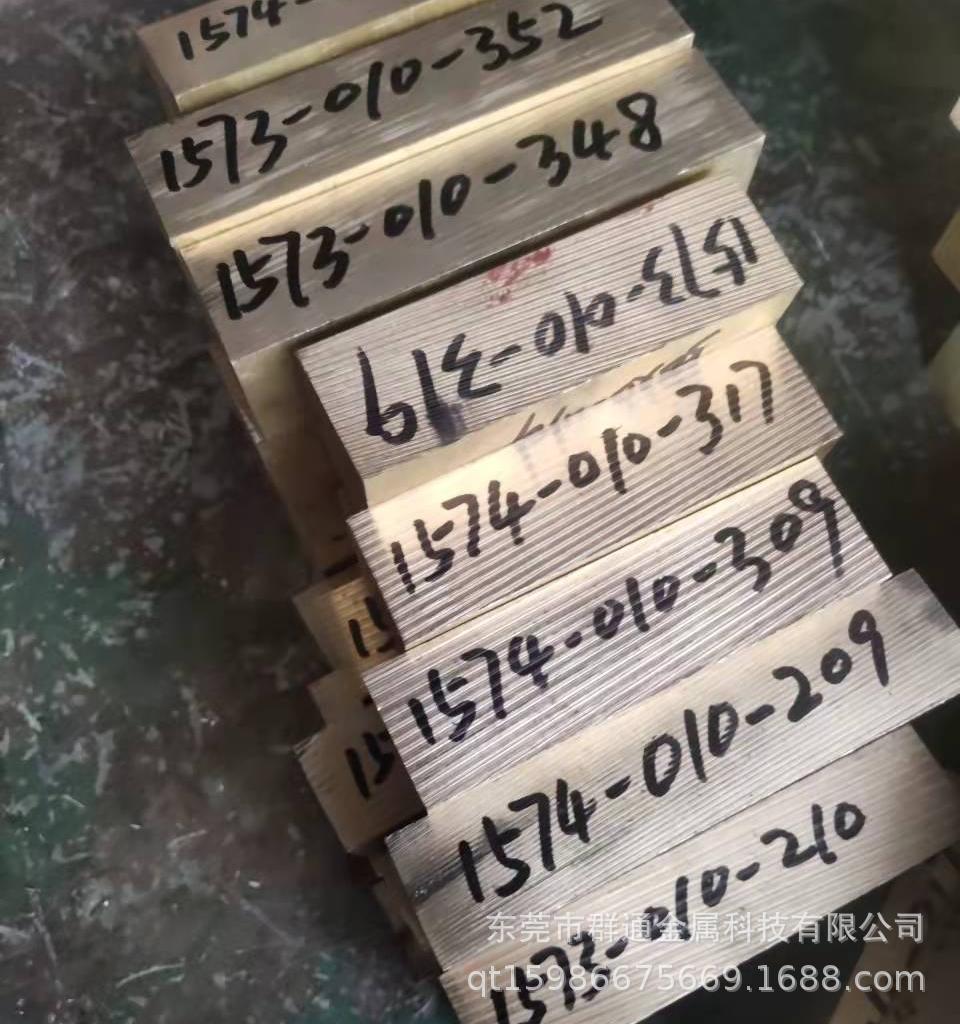 1574-
1573-010-352
1573-010-348
1573-010-319
1574-010-317
1574-010-309
1574-010-209
1573-010-210
15
15
东莞市群通金属科技有限公司
qt15986675669.1688.com